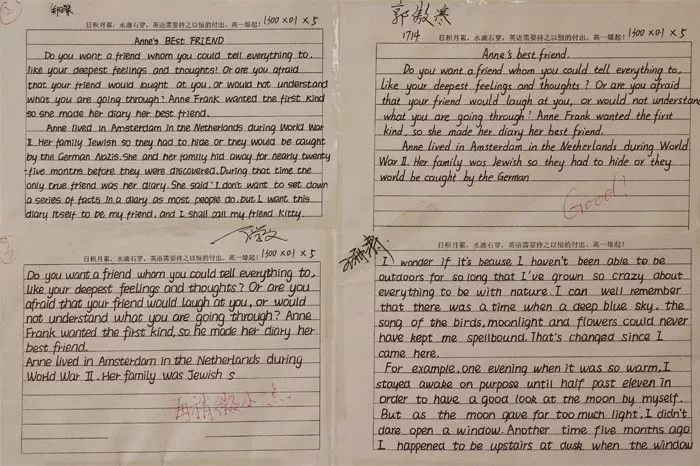 日积月累,水滴石穿,英语需要持之以恒的付出,高一雄起! 1300×01×5
Anne's BEST FRIEND
Do you want a friend whom you could tell everything to,
like your deepest feelings and thoughts! Or are you afraid
that your friend would laught at you, or would not understand
what you are going through? Anne Frank wanted the first kind
so she made her diary her best friend.
Anne lived in Amsterdam in the Netherlands during World War
II. Her family Jewish so they had to hide or they would be caught
by the German Nazis. She and her family hid away for nearly twenty
-five months before they were discovered. During that time the
only true friend was her diary. She said "I don't want to set down
a series of facts in a diary as most people do, but I want this
diary itself to be my friend, and I shall call my friend Kitty.
郭傲寒
1714
日积月累,水滴石穿,英语需要持之以恒的付出,高一雄起! 1300×01×5
Anne's best friend.
Do you want a friend whom you could tell everything to,
like your deepest feelings and thoughts? Or are you afraid
that your friend would laugh at you, or would not understand
what you are going through? Anne Frank wanted the first
kind, so she made her diary her best friend.
Anne lived in Amsterdam in the Netherlands during World
War II. Her family was Jewish so they had to hide or they
world be caught by the German
Good!
日积月累,水滴石穿,英语需要持之以恒的付出,高一雄起! 1300×01×5
Do you want a friend whom you could tell everything to,
like your deepest feelings and thoughts? Or are you
afraid that your friend would laugh at you, or would
not understand what you are going through? Anne
Frank wanted the first kind, so he made her diary her
best friend.
Anne lived in Amsterdam in the Netherlands during
World War II. Her family was Jewish s
再稍微小一点
日积月累,水滴石穿,英语需要持之以恒的付出,高一雄起!
I wonder if it's beause I haven't been able to be
outdoors for so long that I've grown so crazy about
everything to be with nature. I can well remember
that there was a time when a deep blue sky, the
song of the birds, moonlight and flowers could never
have kept me spellbound. That's changed since I
came here.
For example, one evening when it was so warm, I
stayed awake on purpose until half past eleven in
order to have a good look at the moon by myself.
But as the moon gave far too much light, I didn't
dare open a window. Another time five months ago
I happened to be upstairs at dusk when the window